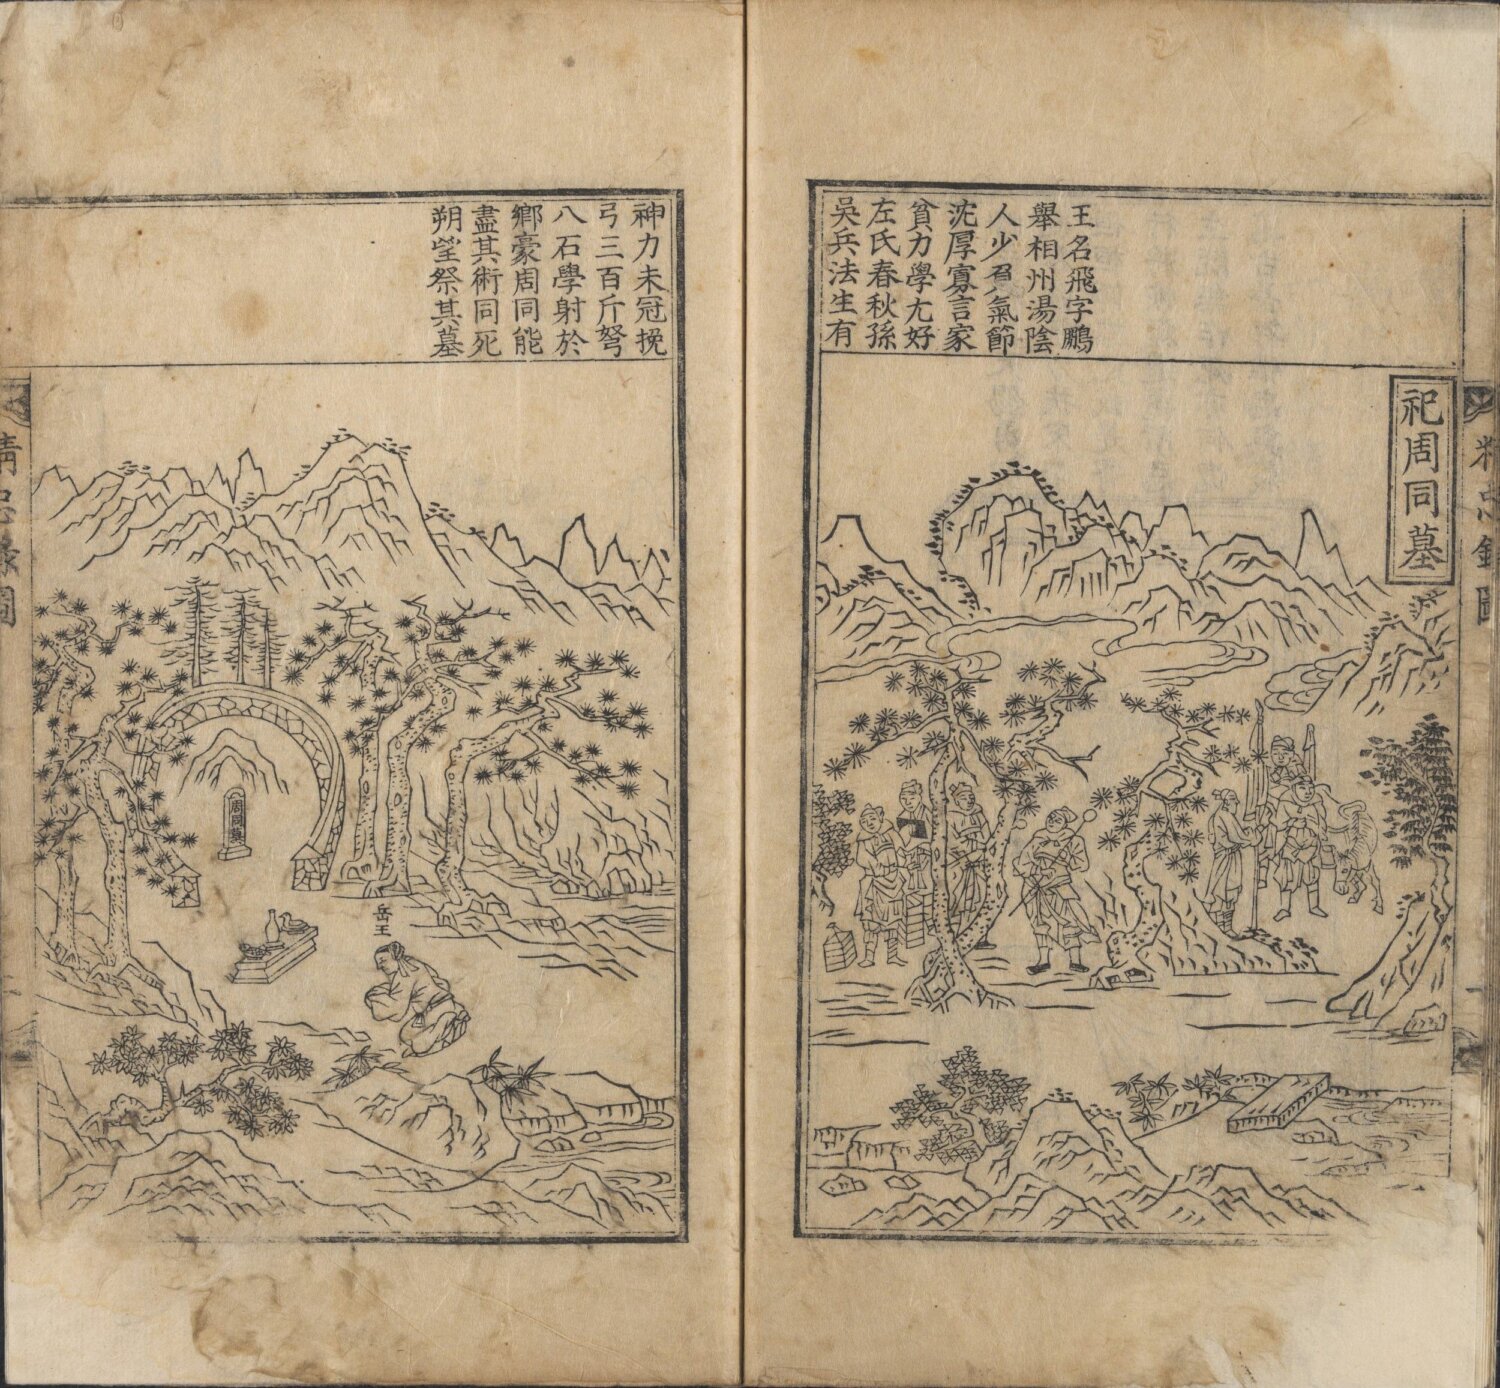 祀周同墓
王名飛字鵬
舉相州湯陰
人少負氣節
沈厚寡言家
貧力學尤好
左氏春秋孫
吳兵法生有
神力未冠挽
弓三百斤弩
八石學射於
鄉豪周同能
盡其術同死
朔望祭其墓
周同墓
岳王
精忠錄圖